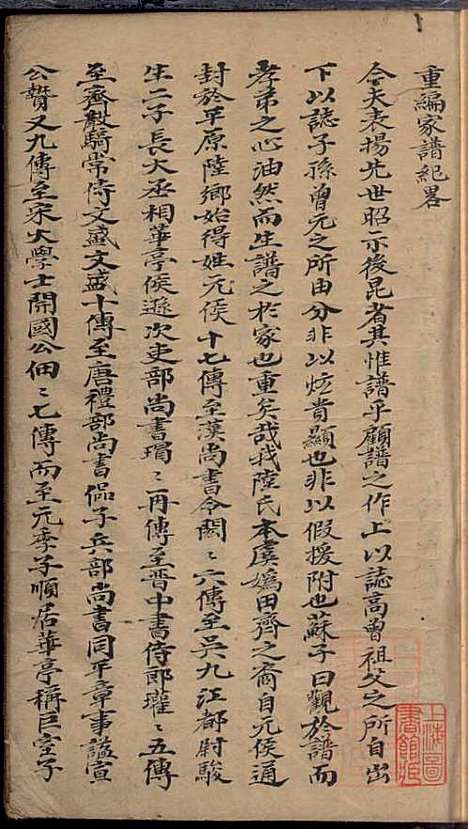 重編家譜紀畧
今夫表揚先世昭示後昆者其惟譜乎顧譜之作上以誌高曾祖父之所自出
下以誌子孫曾元之所由分非以炫貴顯也非以假援附也蘇子曰觀於譜而
孝弟之心油然而生譜之於家也重矣哉我陸氏本虞媯田齊之裔自元侯通
封於平原陸鄉始得姓元侯十七傳至漢尚書令閎〻六傳至吳九江都尉駿
生二子長大丞相華亭侯遜次吏部尚書瑁〻再傳至晋中書侍郎瓘〻五傳
至齊散騎常侍文盛文盛十傳至唐禮部尚書侃子兵部尚書同平章事謚宣
公贄又九傳至宋大學士開國公佃〻七傳而至元季子順居華亭稱巨室子
上海圖書館藏